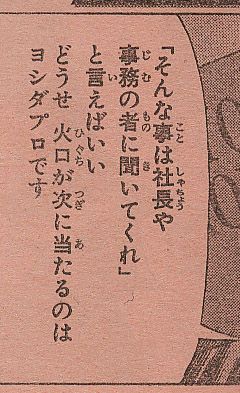 「そんな事は社長や
事務の者に聞いてくれ」
と言えばいい
どうせ 火口が次に当たるのは
ヨシダプロです